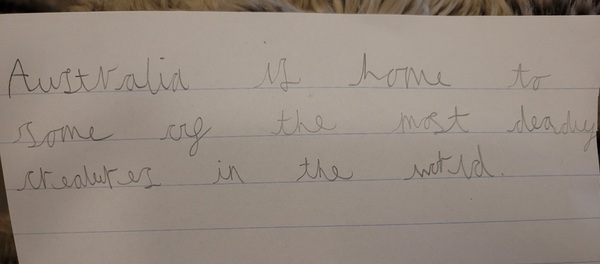 Australia is home to
some of the most deadly
creatures in the world.